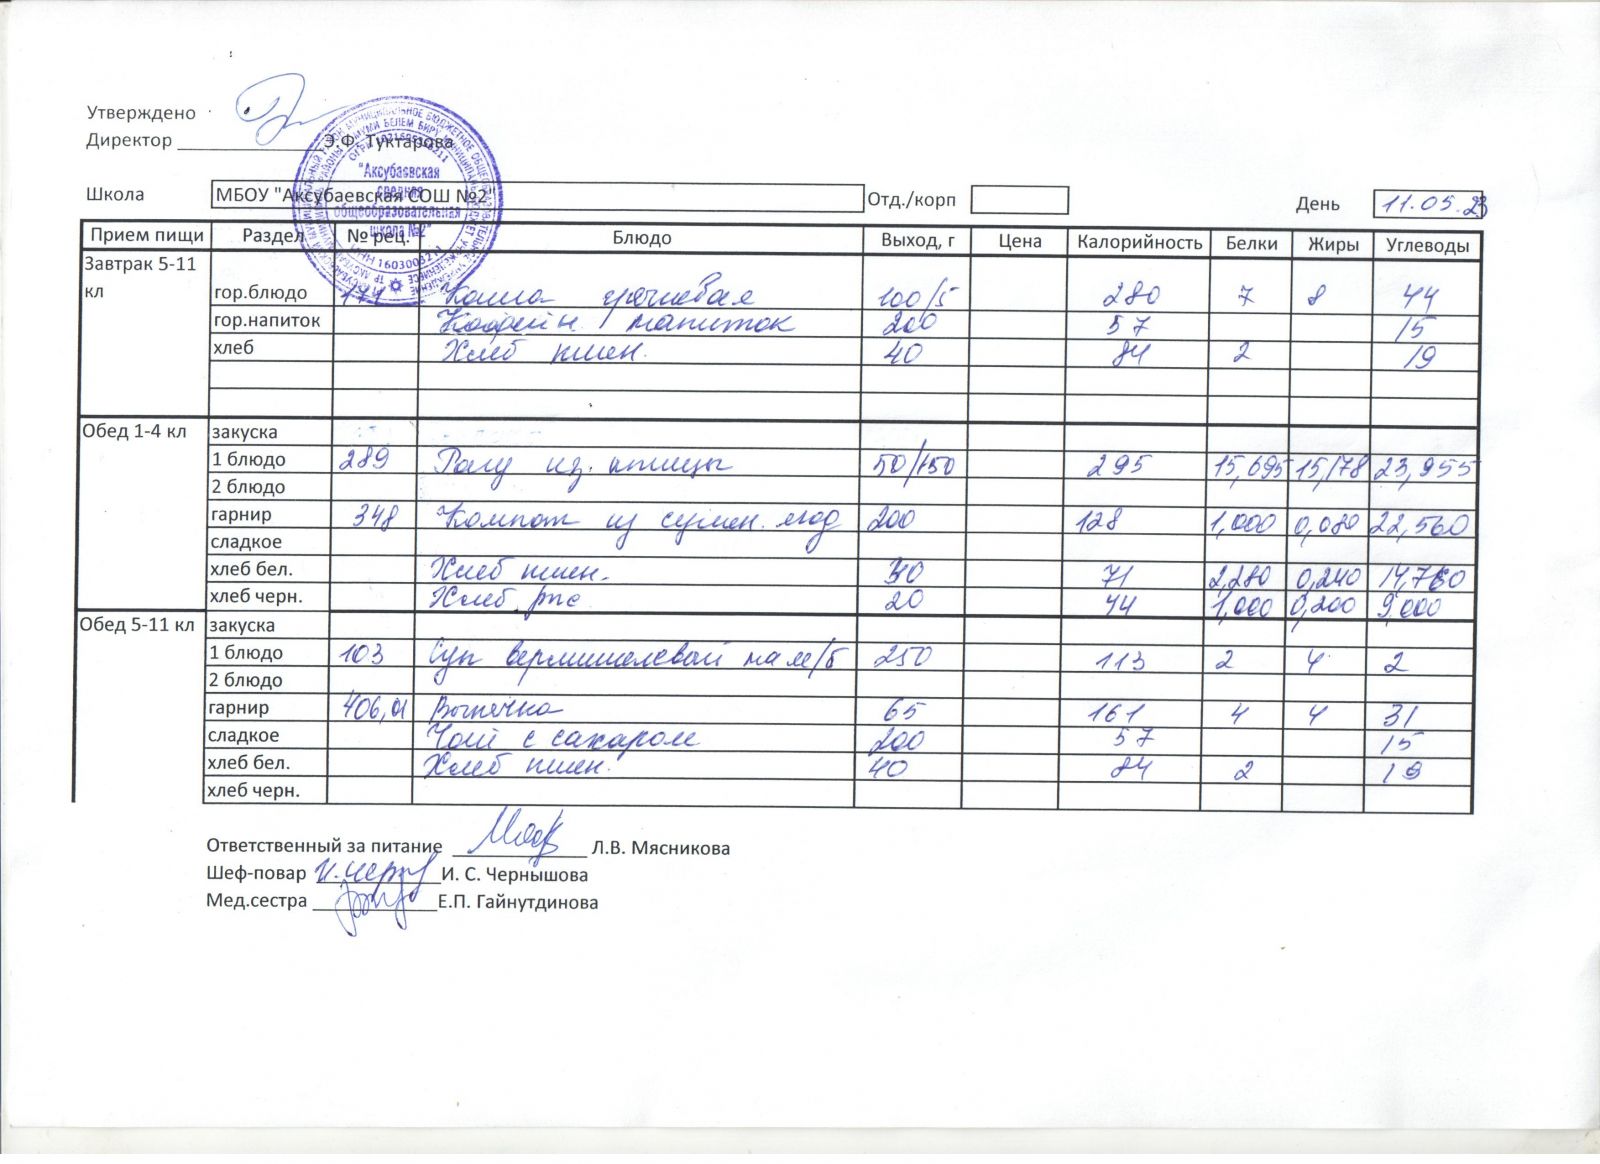 Утверждено
Директор Э.Ф. Туктарова
"Аксубаевская
средняя
общеобразовательная
школа №2"
Школа МБОУ "Аксубаевская СОШ №2" Отд./корп День 11.05.23
Прием пищи Раздел № рец. Блюдо Выход, г Цена Калорийность Белки Жиры Углеводы
Завтрак 5-11
кл гор.блюдо 171 Каша гречневая 100/5 280 7 8 44
гор.напиток Кофейн. напиток 200 57 15
хлеб Хлеб пшен. 40 84 2 19
Обед 1-4 кл закуска
1 блюдо 289 Рагу из птицы 50/150 295 15,695 15,178 23,955
2 блюдо
гарнир 348 Компот из сушен. ягод 200 128 1,000 0,080 22,560
сладкое
хлеб бел. Хлеб пшен. 30 71 2,280 0,240 14,760
хлеб черн. Хлеб рж 20 44 1,000 0,200 9,000
Обед 5-11 кл закуска
1 блюдо 103 Суп вермишелевый на м/б 250 113 2 4 2
2 блюдо
гарнир 406,01 Выпечка 65 161 4 4 31
сладкое Чай с сахаром 200 57 15
хлеб бел. Хлеб пшен. 40 84 2 19
хлеб черн.
Ответственный за питание Л.В. Мясникова
Шеф-повар И. С. Чернышова
Мед.сестра Е.П. Гайнутдинова